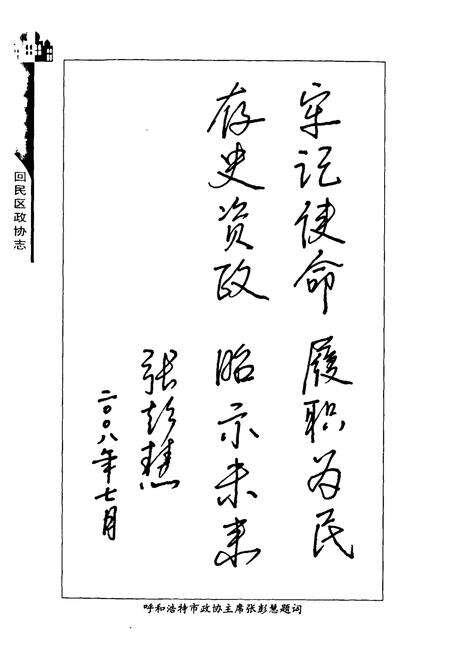 回民区政协志
牢记使命 履职为民
存史资政 昭示未来
张彭慧
二〇〇八年七月
呼和浩特市政协主席张彭慧题词